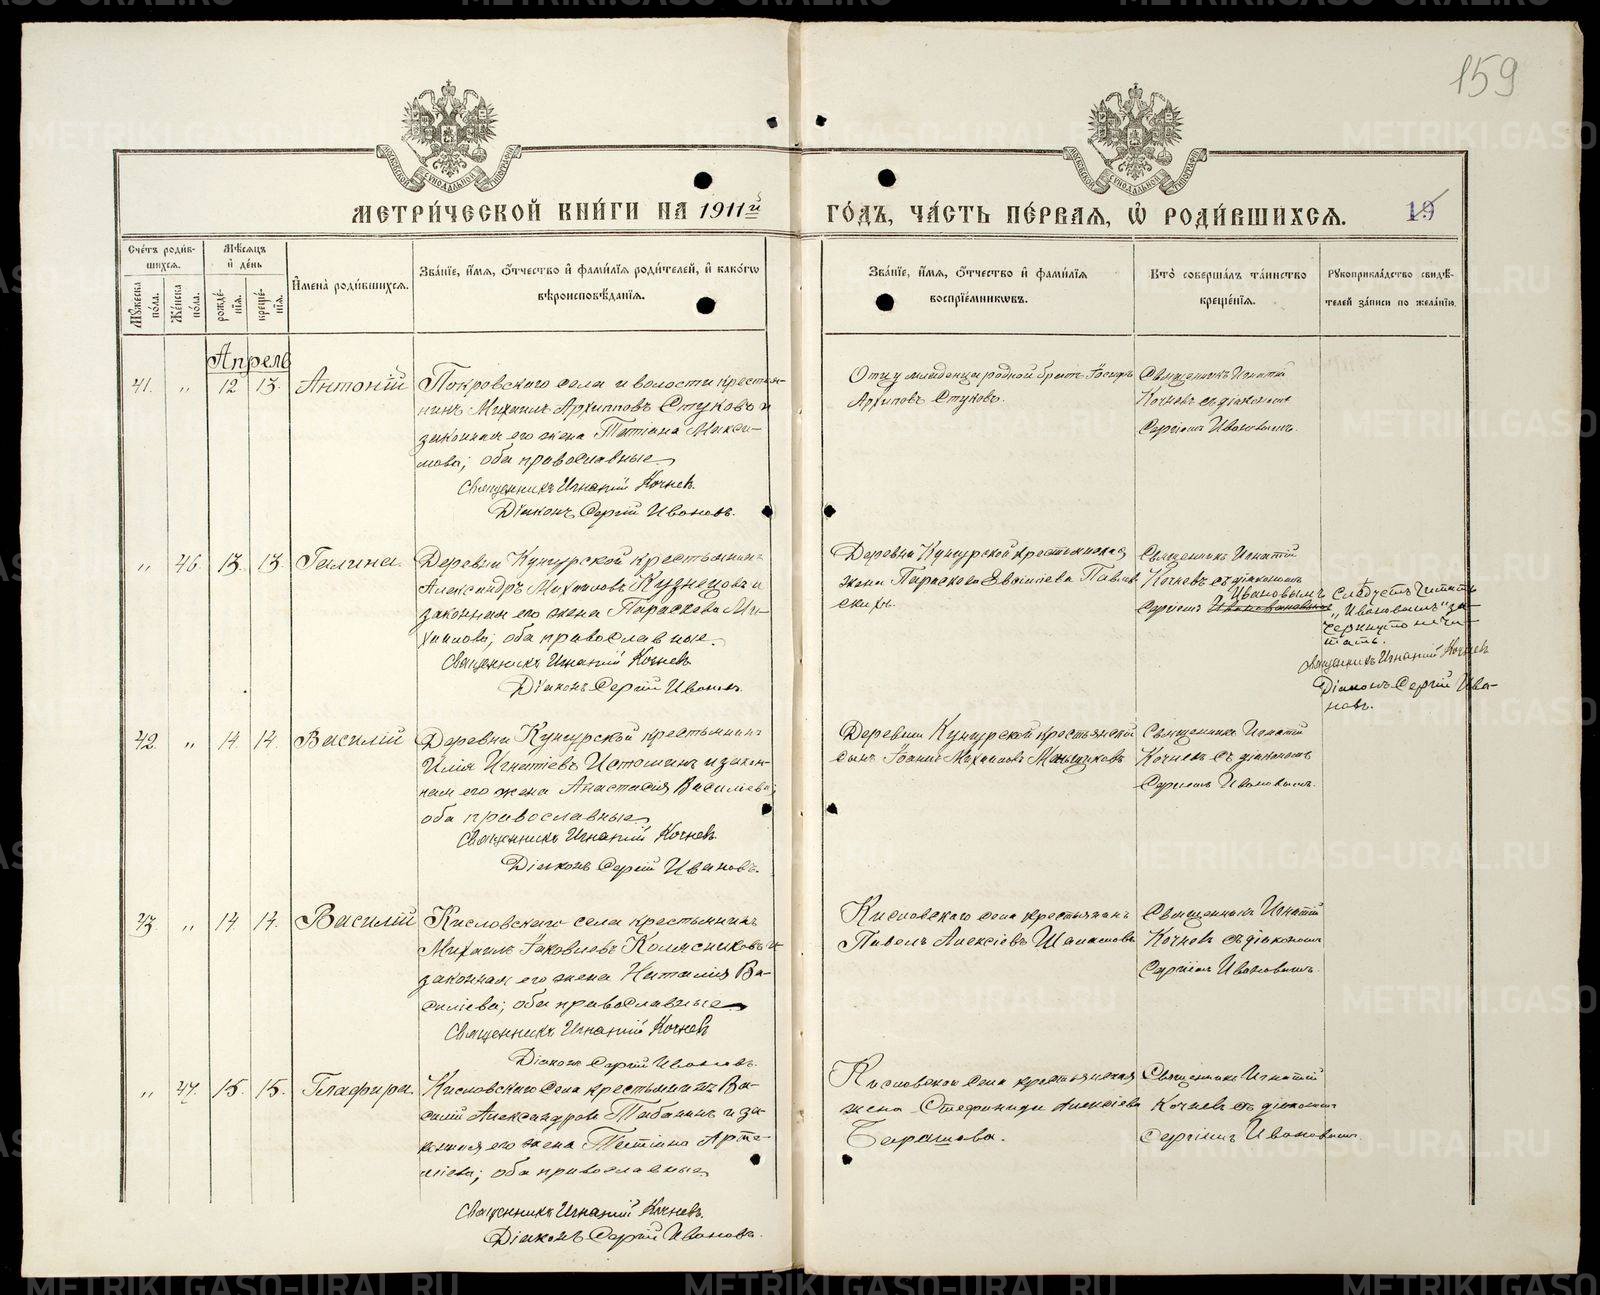 159
МЕТРИ́ЧЕСКОЙ КНИ́ГИ НА 1911й
ГО́ДЪ, ЧА́СТЬ ПЕ́РВАЯ, Ѡ҆ РОДИ́ВШИХСЯ.
19
Сче́тъ роди́в-
шихся.
Мѣ́сяцъ
и҆ де́нь
Му́жеска по́ла.
Же́нска по́ла.
рожде́нїя.
креще́нїя.
И҆мена̀ роди́вшихся.
Зва́нїе, и҆́мя, ѻ҆́тчество и҆ фами́лїя роди́телей, и҆ како́гѡ
вѣроисповѣ́данїя.
Зва́нїе, и҆́мя, ѻ҆́тчество и҆ фами́лїя
воспрїе́мникѡвъ.
Кто̀ соверша́лъ та́инство
креще́нїя.
Рукоприкла́дство свидѣ́-
телей за́писи по жела́нїю.
Апрель
41. " 12 13. Антоній
Покровскаго села и волости крестья-
нинъ Михаилъ Архипповъ Стуковъ и
законная его жена Татіана Макси-
мова; оба православные
Священникъ Игнатій Кочневъ.
Діаконъ Сергій Ивановъ.
Отцу младенца родной братъ Іосифъ
Архиповъ Стуковъ.
Священникъ Игнатій
Кочневъ съ діакономъ
Сергіемъ Ивановымъ.
" 46. 13. 13. Галина.
Деревни Кунгурской крестьянинъ
Александръ Михаиловъ Кузнецовъ и
законная его жена Параскева Ми-
хаилова; оба православные.
Священникъ Игнатій Кочневъ
Діаконъ Сергій Ивановъ.
Деревни Кунгурской крестьянская
жена Параскева Павлов-
скихъ.
Священникъ Игнатій
Кочневъ съ діакономъ
Ивановымъ
Сергіемъ
Следуетъ читать
„Ивановымъ" за-
черкнуто не чи-
тать.
Священникъ Игнатій Кочневъ
Діаконъ Сергій Ива-
новъ.
42. " 14. 14. Василій
Деревни Кунгурской крестьянинъ
Илія Игнатіевъ Истоминъ и закон-
ная его жена Анастасія Василіева;
оба православные.
Священникъ Игнатій Кочневъ.
Діаконъ Сергій Ивановъ.
Деревни Кунгурской крестьянской
сынъ Іоаннъ Михаиловъ Меньщиковъ
Священникъ Игнатій
Кочневъ съ діакономъ
Сергіемъ Ивановымъ.
43. " 14 14. Василій
Кисловскаго села крестьянинъ
Михаилъ Іаковлевъ Колясниковъ и
законная его жена Наталія Ва-
силіева; оба православные
Священникъ Игнатій Кочневъ
Діаконъ Сергій Ивановъ.
Кисловскаго села крестьянинъ
Павелъ Алексіевъ
Священникъ Игнатій
Кочневъ съ діакономъ
Сергіемъ Ивановымъ.
" 47. 15. 15. Глафира.
Кисловскаго села крестьянинъ Ва-
силій Александровъ и за-
конная его жена Татіана Арте-
міева; оба православные
Священникъ Игнатій Кочневъ.
Діаконъ Сергій Ивановъ.
Кисловскаго села крестьянская
жена Стефанида Алексіева
Барашова.
Священникъ Игнатій
Кочневъ съ діакономъ
Сергіемъ Ивановымъ.
METRIKI.GASO-URAL.RU